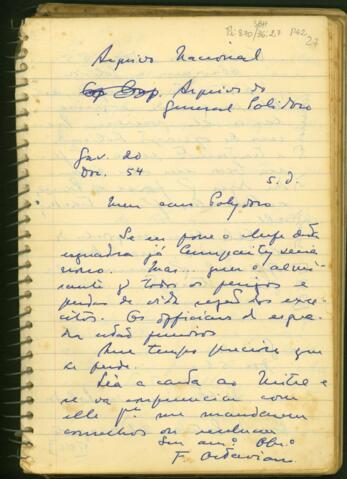 SBH
Pi 870/36:27 P42
27
Arquivo Nacional
Cop Arquivo do
General Polidoro
Gav. 20
Doc. 54
s. d.
Meu caro Polydoro
Se eu fosse o chefe desta
esquadra já Curupaity seria
nosso. Mas... quer o almi-
rante q todos os perigos e
perdas de vida sejão dos exer-
citos. Os officiaes de esqua-
dra estão furiosos
Que tempo precioso que
se perde.
Lêa a carta ao Mitre e
se va
elle pª me mandarem
conselhos ou
Seu amº Obrº
F. Octaviano